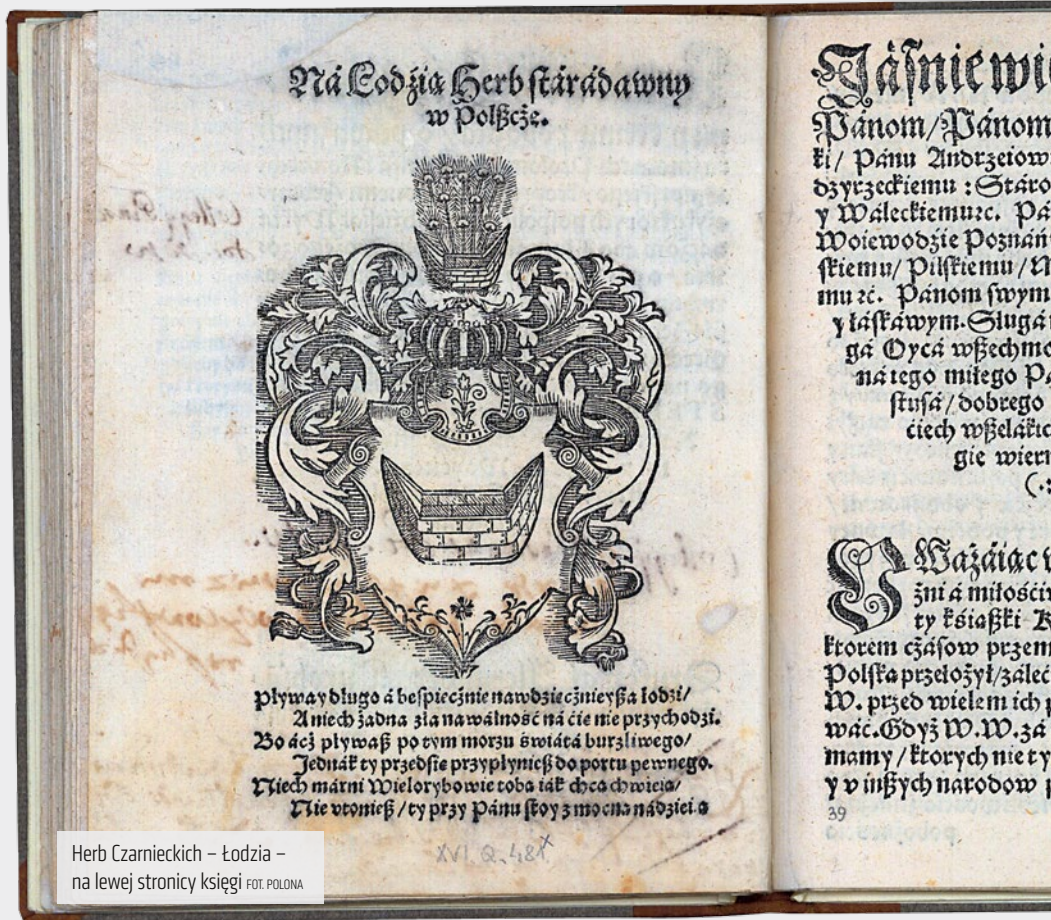 Ná Łodzią Herb stárádawny
w Polszcże.
Pływay długo á bespiecżnie nawdziecżnieysza łodzi/
A niech żadna zła nawáłność ná cie nie przychodzi.
Bo ácż pływasz po tym morzu świátá burzliwego/
Jednák ty przedsie przypłyniesz do portu pewnego.
Niech márni Wielorybowie tobą iák chcą chwieią/
Nie vtoniesz/ ty przy Pánu stoy z mocną nádzieią
XVI. Q. 481
Jáśnie wi
Pánom/ Pánom
ki/ Pánu Andrzeiow
dzyrzeckiemu : Stáro
y Wáleckiemu ꝛc. Pá
Woiewodzie Poznáń
skiemu/ Pilskiemu/
mu ꝛc. Pánom swym
y łáskáwym. Sługá
gá Oycá wszechmo
ná tego miłego Pá
stusá/ dobrego
ćiech wszelákic
gie wiern
(:
Ważáiąc
żni á miłośći
ty książki
ktorem cżásow przem
Polská przełożył/ záleć
W. przed wielem ich
wáć. Gdyż W. W. zá
mamy/ ktorych nie ty
y v inszych narodow
39
Herb Czarnieckich – Łodzia –
na lewej stronicy księgi FOT. POLONA